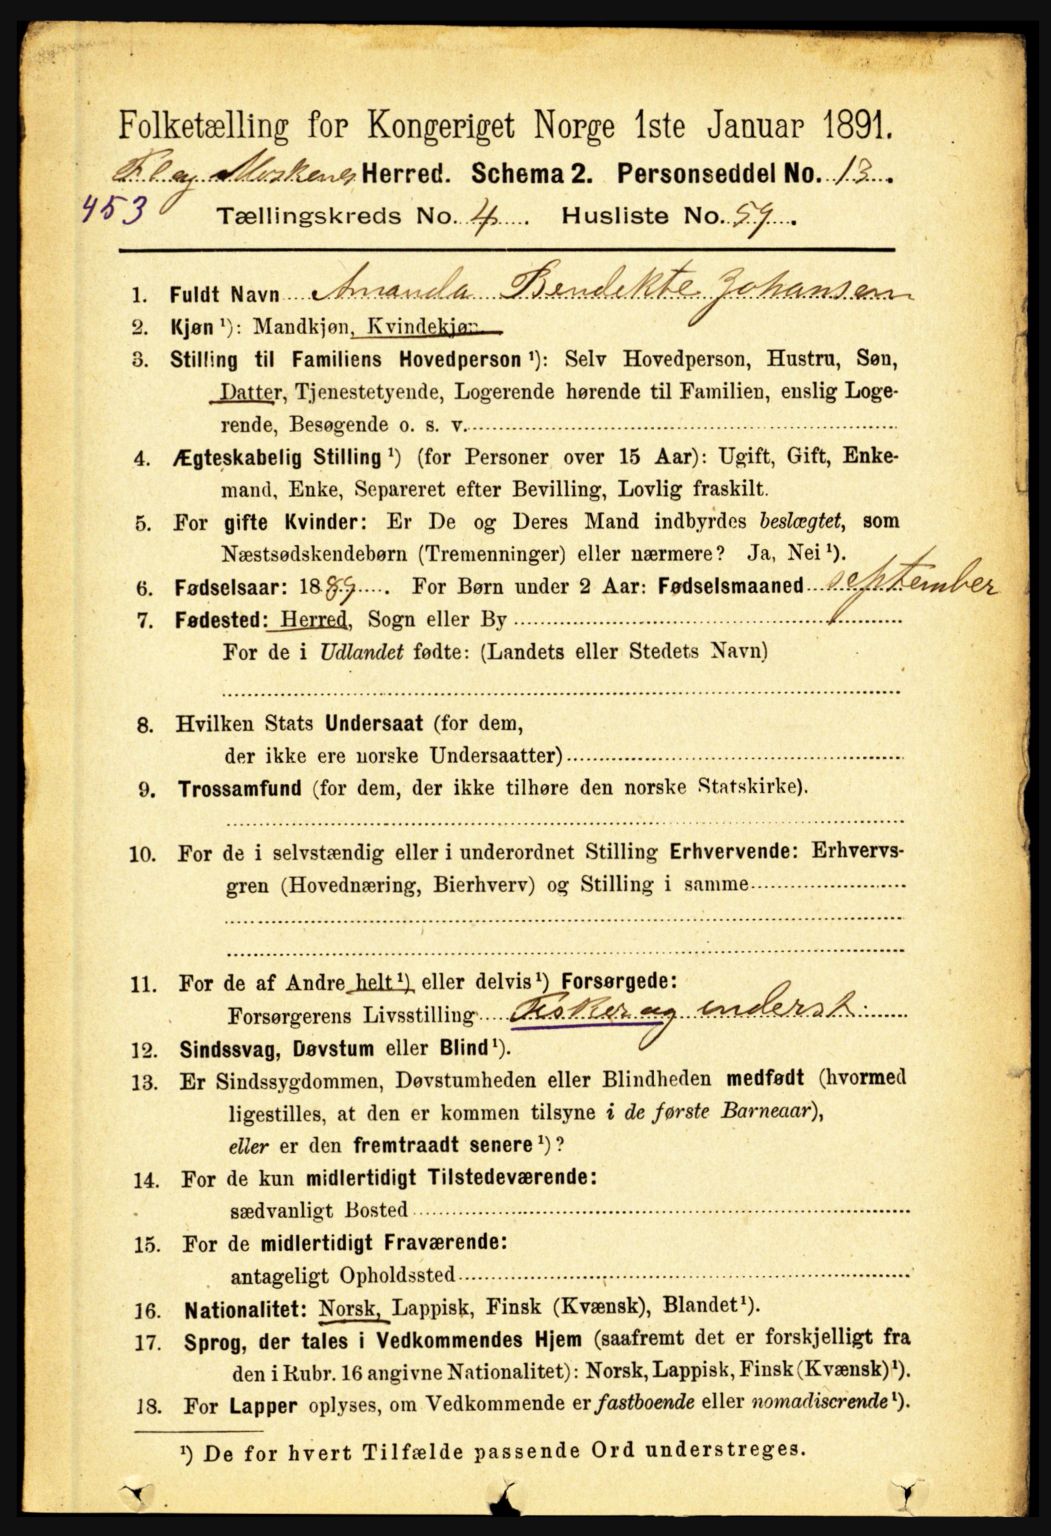 Folketælling for Kongeriget Norge 1ste Januar 1891.
Fl og Moskenes Herred. Schema 2. Personseddel No. 13.
453
Tællingskreds No. 4. Husliste No. 59.
1. Fuldt Navn Amanda Bendekte Johansen
2. Kjøn ¹): Mandkjøn, Kvindekjøn
3. Stilling til Familiens Hovedperson ¹): Selv Hovedperson, Hustru, Søn,
Datter, Tjenestetyende, Logerende hørende til Familien, enslig Loge-
rende, Besøgende o. s. v.
4. Ægteskabelig Stilling ¹) (for Personer over 15 Aar): Ugift, Gift, Enke-
mand, Enke, Separeret efter Bevilling, Lovlig fraskilt.
5. For gifte Kvinder: Er De og Deres Mand indbyrdes beslægtet, som
Næstsødskendebørn (Tremenninger) eller nærmere? Ja, Nei ¹).
6. Fødselsaar: 1889. For Børn under 2 Aar: Fødselsmaaned september
7. Fødested: Herred, Sogn eller By
For de i Udlandet fødte: (Landets eller Stedets Navn)
8. Hvilken Stats Undersaat (for dem,
der ikke ere norske Undersaatter)
9. Trossamfund (for dem, der ikke tilhøre den norske Statskirke).
10. For de i selvstændig eller i underordnet Stilling Erhvervende: Erhvervs-
gren (Hovednæring, Bierhverv) og Stilling i samme
11. For de af Andre helt ¹) eller delvis ¹) Forsørgede:
Forsørgerens Livsstilling Fisker og inderst.
12. Sindssvag, Døvstum eller Blind ¹).
13. Er Sindssygdommen, Døvstumheden eller Blindheden medfødt (hvormed
ligestilles, at den er kommen tilsyne i de første Barneaar),
eller er den fremtraadt senere ¹)?
14. For de kun midlertidigt Tilstedeværende:
sædvanligt Bosted
15. For de midlertidigt Fraværende:
antageligt Opholdssted
16. Nationalitet: Norsk, Lappisk, Finsk (Kvænsk), Blandet ¹).
17. Sprog, der tales i Vedkommendes Hjem (saafremt det er forskjelligt fra
den i Rubr. 16 angivne Nationalitet): Norsk, Lappisk, Finsk (Kvænsk) ¹).
18. For Lapper oplyses, om Vedkommende er fastboende eller nomadiserende ¹).
¹) De for hvert Tilfælde passende Ord understreges.